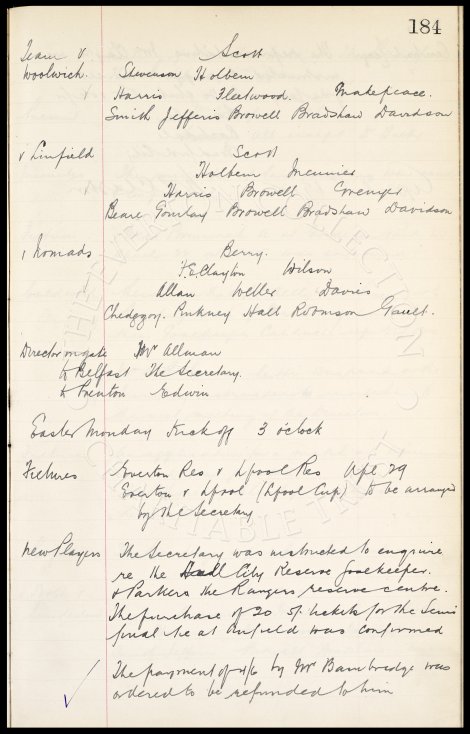 184
Team v Scott
Woolwich Stevenson Holbem
v Harris Fleetwood. Makepeace.
Smith Jefferis Browell Bradshaw Davidson
v Linfield Scott
Holbem Meunier
Harris Browell Grenyer
Beare Gourlay Browell Bradshaw Davidson
v Nomads Berry.
F.E. Clayton Wilson
Allan Weller Davis
Chedgzoy. Pinkney Hall Robinson Gault.
Director on gate Mr Allman
to Belfast The Secretary.
to Prenton Edwin
Easter Monday Kick off 3 o'clock
Fixtures Everton Res v Lpool Res Apl 29
Everton v Lpool (Lpool Cup) to be arranged
by the Secretary
New Players The Secretary was instructed to enquire
re the City Reserve Goalkeeper.
& Parkers the Rangers reserve centre.
The purchase of 20 5/- tickets for the Semi
final tie at Anfield was confirmed
The payment of 4/6 by Mr Bainbridge was
ordered to be refunded to him
THE EVERTON COLLECTION CHARITABLE TRUST